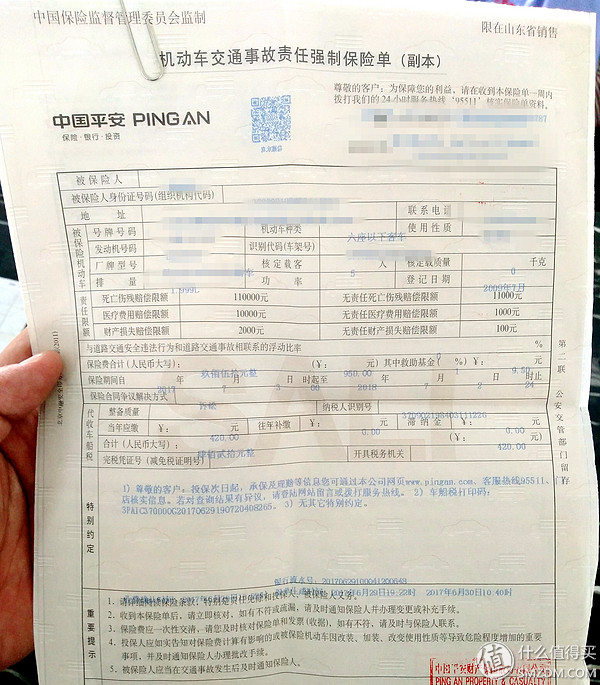 中国保险监督管理委员会监制
限在山东省销售
机动车交通事故责任强制保险单（副本）
尊敬的客户：为保障您的利益，请在收到本保险单一周内
拨打我们的24小时服务热线“95511”核实保险单资料。
中国平安 PING AN
保险·银行·投资
被保险人
被保险人身份证号码(组织机构代码)
地 址 联系电话
被保险机动车
号牌号码 机动车种类 六座以下客车 使用性质
发动机号码 识别代码(车架号)
厂牌型号 车 核定载客 5 人 核定载质量 0 千克
排 量 1.999L 功 率 登记日期 2009年7月
责任限额
死亡伤残赔偿限额 110000元 无责任死亡伤残赔偿限额 11000元
医疗费用赔偿限额 10000元 无责任医疗费用赔偿限额 1000元
财产损失赔偿限额 2000元 无责任财产损失赔偿限额 100元
与道路交通安全违法行为和道路交通事故相联系的浮动比率 %
保险费合计(人民币大写)： 玖佰伍拾元整 (￥： 950.00 元) 其中救助基金( 1 %)￥： 9.50 元
保险期间自 2017 年 7 月 3 日 00 时起至 2018 年 7 月 2 日 24 时止
保险合同争议解决方式 诉讼
代收车船税
整备质量 纳税人识别号
当年应缴 ￥： 420.00 元 往年补缴 ￥： 0.00 元 滞纳金 ￥： 0.00 元
合计(人民币大写)： 肆佰贰拾元整 (￥： 420.00 元)
完税凭证号(减免税证明号) 开具税务机关
特别约定
1) 尊敬的客户：投保次日起，承保及理赔等信息您可通过本公司网页www.pingan.com、客服热线95511、门
店核实信息。若对查询结果有异议，请登陆网站留言或拨打服务热线。 2) 车船税打印码：
3) 无其它特别约定。
银行流水号：
2017年6月30日10:40时
重要提示
1、请详细阅读保险条款，特别是责任免除和投保人、被保险人义务。
2、收到本保险单后，请立即核对，如有不符或疏漏，请及时通知保险人并办理变更或补充手续。
3、保险费应一次性交清，请您及时核对保险单和发票(收据)，如有不符，请及时与保险人联系。
4、投保人应如实告知对保险费计算有影响的或被保险机动车因改装、加装、改变使用性质等导致危险程度增加的重要
事项，并及时通知保险人办理批改手续。
5、被保险人应当在交通事故发生后及时通知保险人。
第二联 公安交管部门留存
PING AN PROPERTY & CASUALTY
值 什么值得买
SMZDM.COM